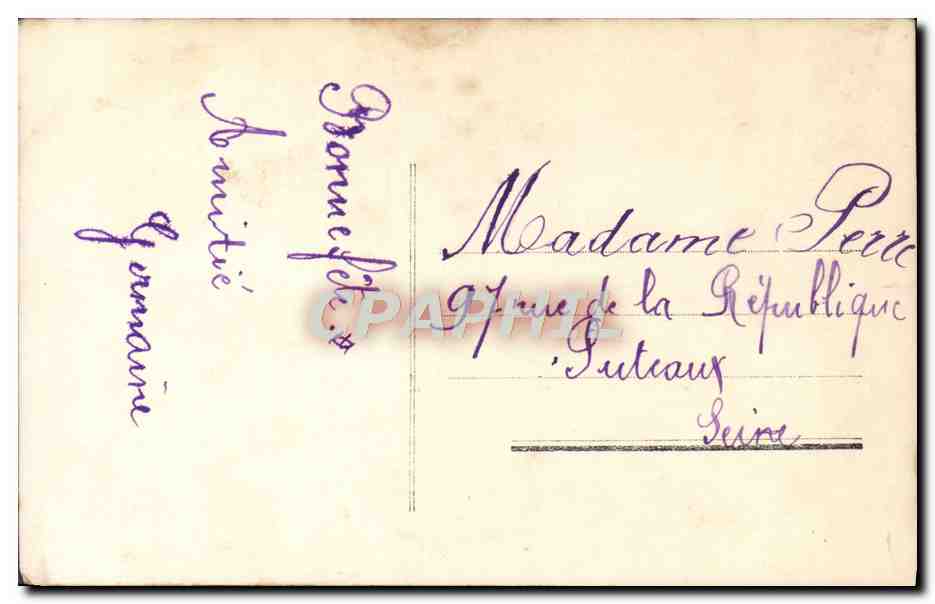 Bonne fête.
Amitié
Germaine
Madame Perre
97 rue de la République
Puteaux
Seine
CPAPHIL